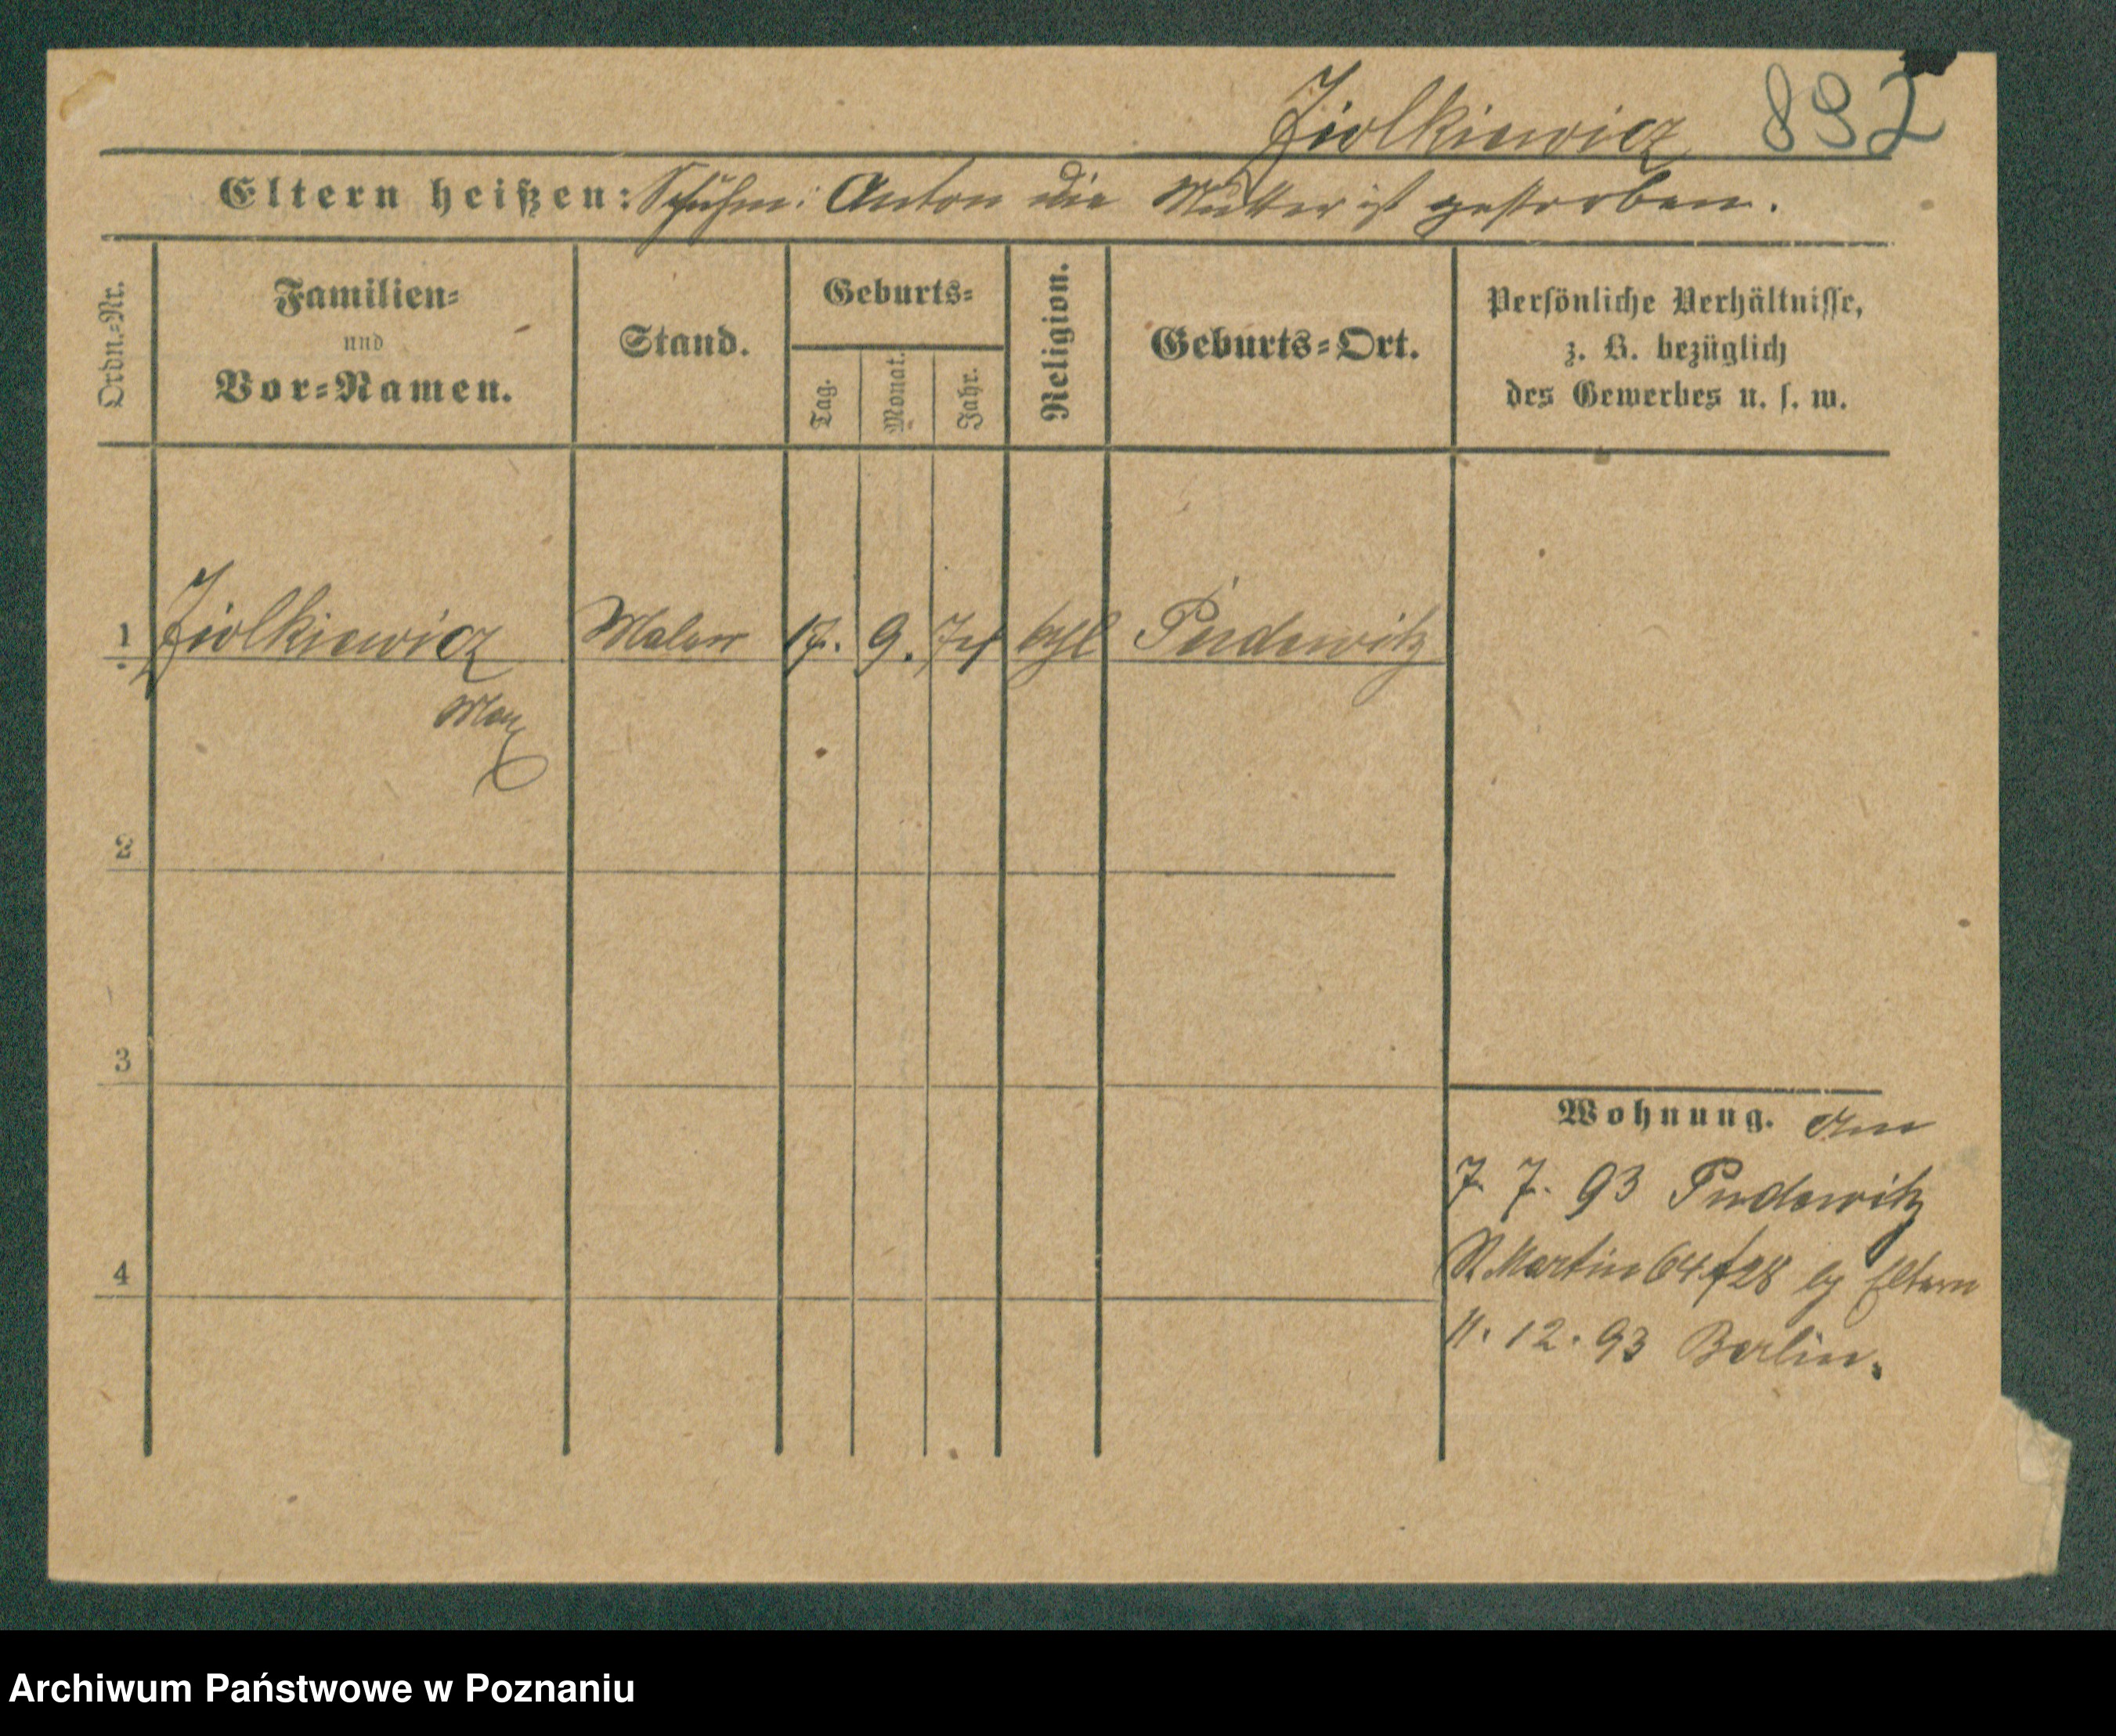 Ziolkiewicz 892
Eltern heißen: Schuhm: Anton die Mutter ist gestorben.
Ordn.-Nr.
Familien-
und
Vor-Namen.
Stand.
Geburts-
Tag.
Monat.
Jahr.
Religion.
Geburts-Ort.
Persönliche Verhältnisse,
z. B. bezüglich
des Gewerbes u. s. w.
1 Ziolkiewicz Maler 17. 9. 74 kthl Pudewitz
Max
2
3
4
Wohnung. Am
7. 7. 93 Pudewitz
St. Martin 64 /28 Eltern
11. 12. 93 Berlin.
Archiwum Państwowe w Poznaniu